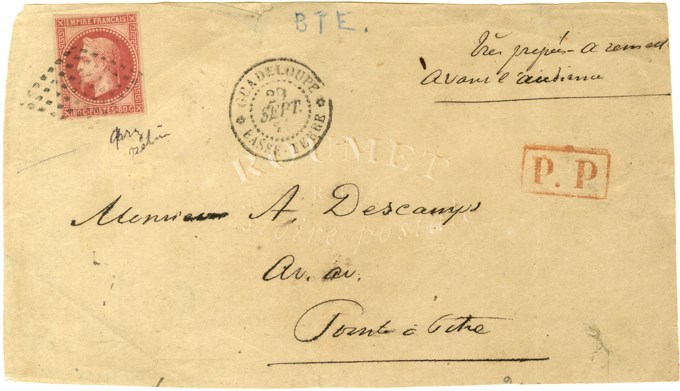 BTE.
EMPIRE FRANÇAIS
80C POSTES 80C
Très pressé à remettre
avant l'audience
GUADELOUPE
SEPT.
BASSE-TERRE
ROUMET
histoire postale
P.P
Monsieur A. Descamps
Av. av.
Pointe à Pitre